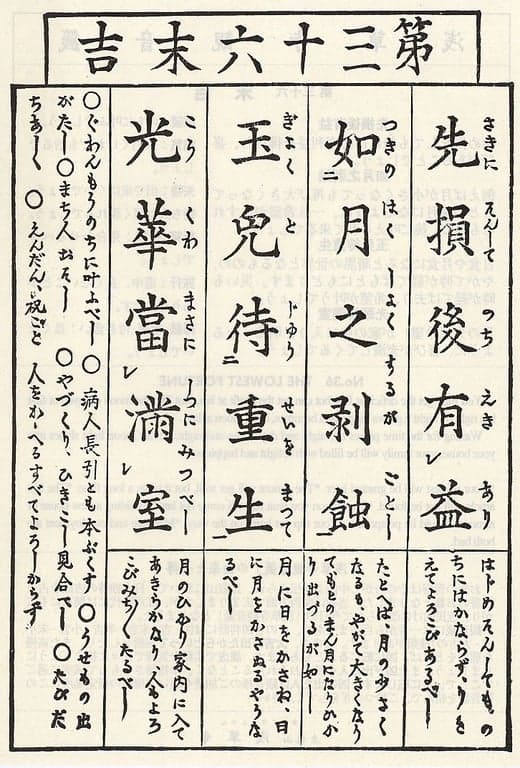 第三十六末吉
先損後有㆑益
さきに そんして のち えき あ
はじめそんしても、の
ちにはかならず、りを
えてよろこびあるべし
如㆓月之剥蝕
つきの はくしよくするが ごとし
たとへば、月の少さく
なるも、やがて大きくなり
てもとのまん月になりひか
り出づるが如し
玉兎待㆓重生㆒
ぎよく と ぢゆうせいを まつて
月に日をかさね、日
に月をかさぬるやうな
るべし
光華當㆑滿㆑室
こうくわ まさに しつにみつべし
月のひかり家内に入て
あきらかなり人もよろ
こびみちくたるべし
〇ぐわんもうのちに叶ふべし〇 病人長引とも本ぶくす 〇うせもの出
がたし〇まち人おそし 〇やづくり、ひきこし見合べし〇たびだ
ちあしく 〇えんだん、祝ごと 人をかゝへるすべてよろしからず